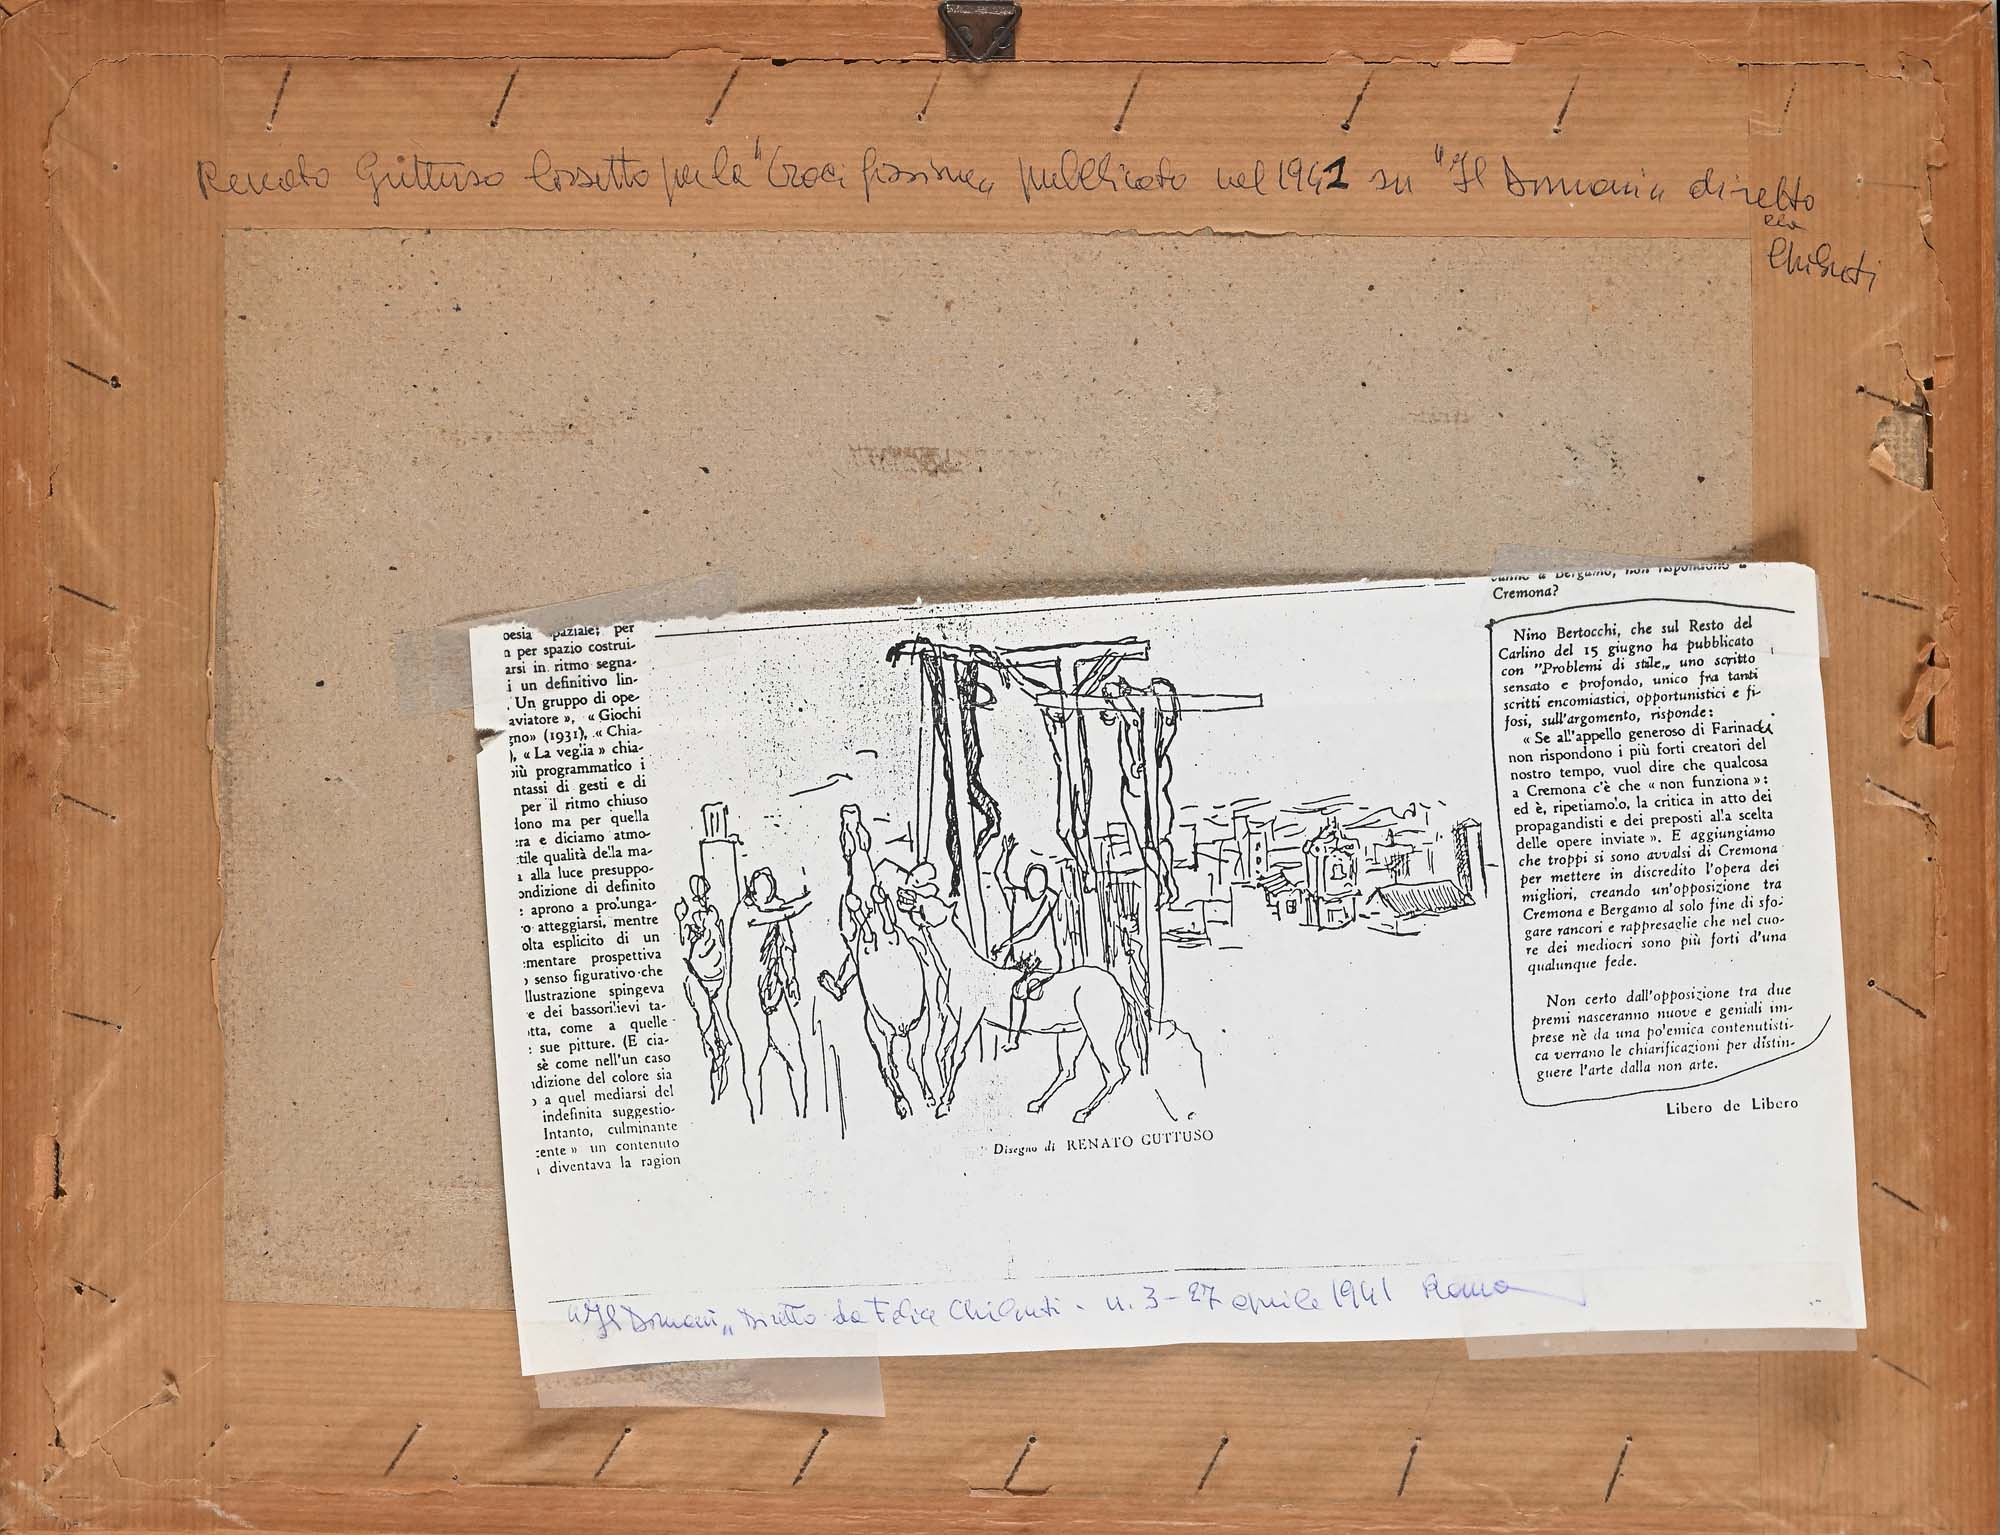 Renato Guttuso bozzetto per la "Crocifissione„ pubblicato nel 1941 su "Il Domani„ diretto
da
Chilanti
oesia spaziale; per
n per spazio costrui-
arsi in ritmo segna-
i un definitivo lin-
. Un gruppo di ope-
aviatore », « Giochi
gno» (1931), « Chia-
), « La veglia » chia-
più programmatico i
ntassi di gesti e di
per il ritmo chiuso
dono ma per quella
ra e diciamo atmo-
tile qualità della ma-
a alla luce presuppo-
ondizione di definito
: aprono a prolunga-
o atteggiarsi, mentre
olta esplicito di un
mentare prospettiva
senso figurativo che
llustrazione spingeva
e dei bassorilievi ta-
tta, come a quelle
: sue pitture. (E cia-
sè come nell'un caso
ndizione del colore sia
o a quel mediarsi del
indefinita suggestio-
Intanto, culminante
cente » un contenuto
i diventava la ragion
Disegno di RENATO GUTTUSO
vanno a Bergamo, non rispondono a
Cremona?
Nino Bertocchi, che sul Resto del
Carlino del 15 giugno ha pubblicato
con "Problemi di stile„ uno scritto
sensato e profondo, unico fra tanti
scritti encomiastici, opportunistici e fi-
fosi, sull'argomento, risponde:
« Se all'appello generoso di Farinacci
non rispondono i più forti creatori del
nostro tempo, vuol dire che qualcosa
a Cremona c'è che « non funziona »:
ed è, ripetiamolo, la critica in atto dei
propagandisti e dei preposti alla scelta
delle opere inviate ». E aggiungiamo
che troppi si sono avvalsi di Cremona
per mettere in discredito l'opera dei
migliori, creando un'opposizione tra
Cremona e Bergamo al solo fine di sfo-
gare rancori e rappresaglie che nel cuo-
re dei mediocri sono più forti d'una
qualunque fede.
Non certo dall'opposizione tra due
premi nasceranno nuove e geniali im-
prese nè da una polemica contenutisti-
ca verrano le chiarificazioni per distin-
guere l'arte dalla non arte.
Libero de Libero
"Il Domani„ Diretto da Felice Chilanti - n. 3 - 27 aprile 1941 Roma